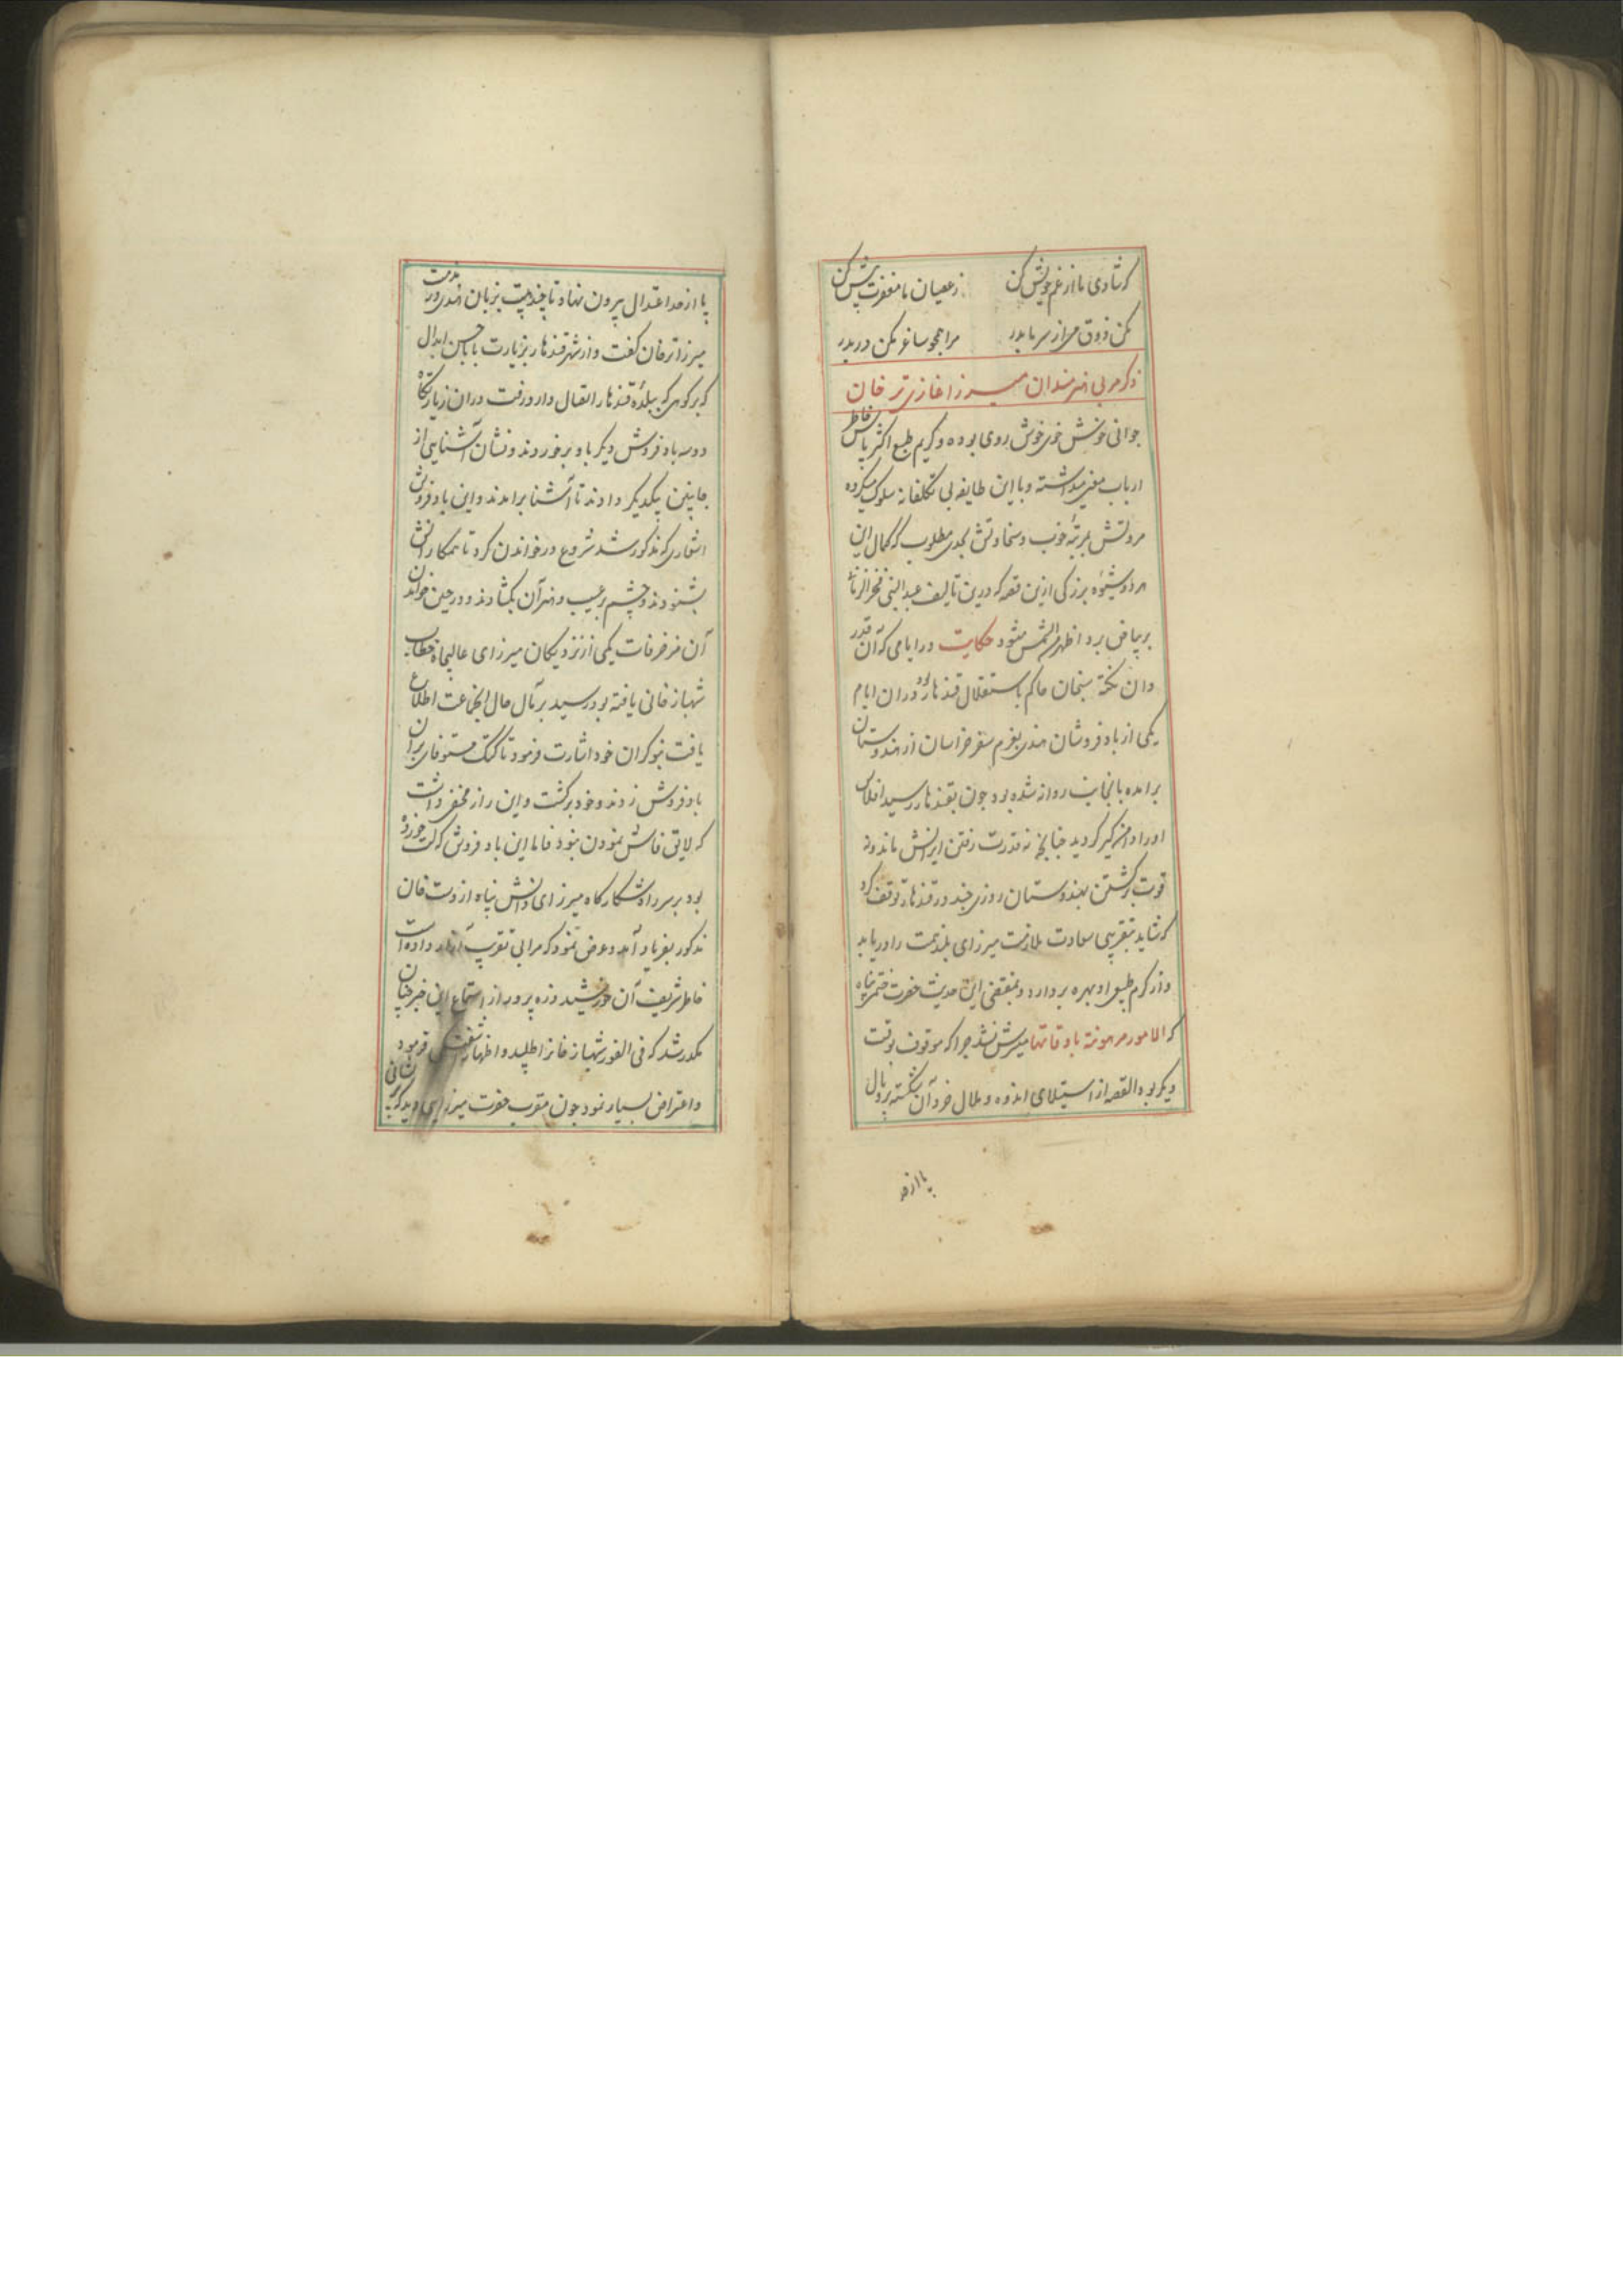 که شادی ما از غم خویش کن ز عصیان ما مغفرت بیش کن
مکن ذوق می از سر ما بدر مرا همچو ساغر مکن دربدر
ذکر مربی هنرمندان میرزا غازی ترخان
جوانی خوش خوی خوش روی بوده و کریم طبع اکثر پاس خاطر
ارباب معنی میداشته و با این طایفه بی تکلفانه سلوک میکرده
مروتش بمرتبهٔ خوب و سخاوتش بحدی مطلوب که کمال این
هر دو شیوهٔ بزرگی ازین قصه که درین تالیف عبدالنبی فخرالزمانی
بر بیاض برد اظهر من الشمس میشود حکایت در ایامی که آن قدر
دان نکته سنجان حاکم باستقلال قندهار بود در آن ایام
یکی از بادفروشان هندی بعزم سفر خراسان از هندوستان
برآمده بآنجانب روانه شده بود چون بقندهار رسید افلاس
او را دامن گیر گردید چنانچه نه قدرت رفتن ایرانش ماند و نه
قوت برگشتن بهندوستان روزی چند در قندهار توقف کرد
که شاید بتقریبی سعادت ملازمت میرزای بلند همت را دریابد
و از کرم طبعی او بهره بردارد و بمقتضی این حدیث حضرت ختمی پناه
که الامور مرهونة باوقاتها میسرش نشد چرا که موقوف بوقت
دیگر بود القصه از استیلای اندوه و ملال خرد آن شکسته پر و بال
پا از حد
پا از حد اعتدال بیرون نهاد تا چند بیت بزبان هندی در مذمت
میرزا ترخان گفت و از شهر قندهار بزیارت بابا حسن ابدال
که بر کوهی که ببلدهٔ قندهار اتصال دارد رفت در آن زیارتگاه
دو سه بادفروش دیگر باو برخوردند و نشان آشنایی از
جانبین بیکدیگر دادند تا آشنا برآمدند و این بادفروش
اشعاری که مذکور شد شروع در خواندن کرد تا همکارانش
بشنودند و چشم بر عیب و هنر آن بگشادند و در حین خواندن
آن مزخرفات یکی از نزدیکان میرزای عالیجاه خطاب
شهباز خانی یافته بود رسید بر مآل حال آنجماعت اطلاع
یافت بنوکران خود اشارت فرمود تا کتک مستوفای بر آن
بادفروش زدند و خود برگشت و این راز مخفی داشت
که لایق فاش نمودن نبود فاما این بادفروش که کتک خورده
بود بر سر راه شکارگاه میرزای دانش پناه از دست خان
مذکور بفریاد آمد و عرض نمود که مرا بی تقریب آزار داده است
خاطر شریف آن خورشید ذره پرور از استماع این خبر چنان
مکدر شد که فی الفور شهباز خانرا طلبید و اظهار فرمود
و اعتراض بسیار نمود چون مقرب حضرت میرزایی دید که